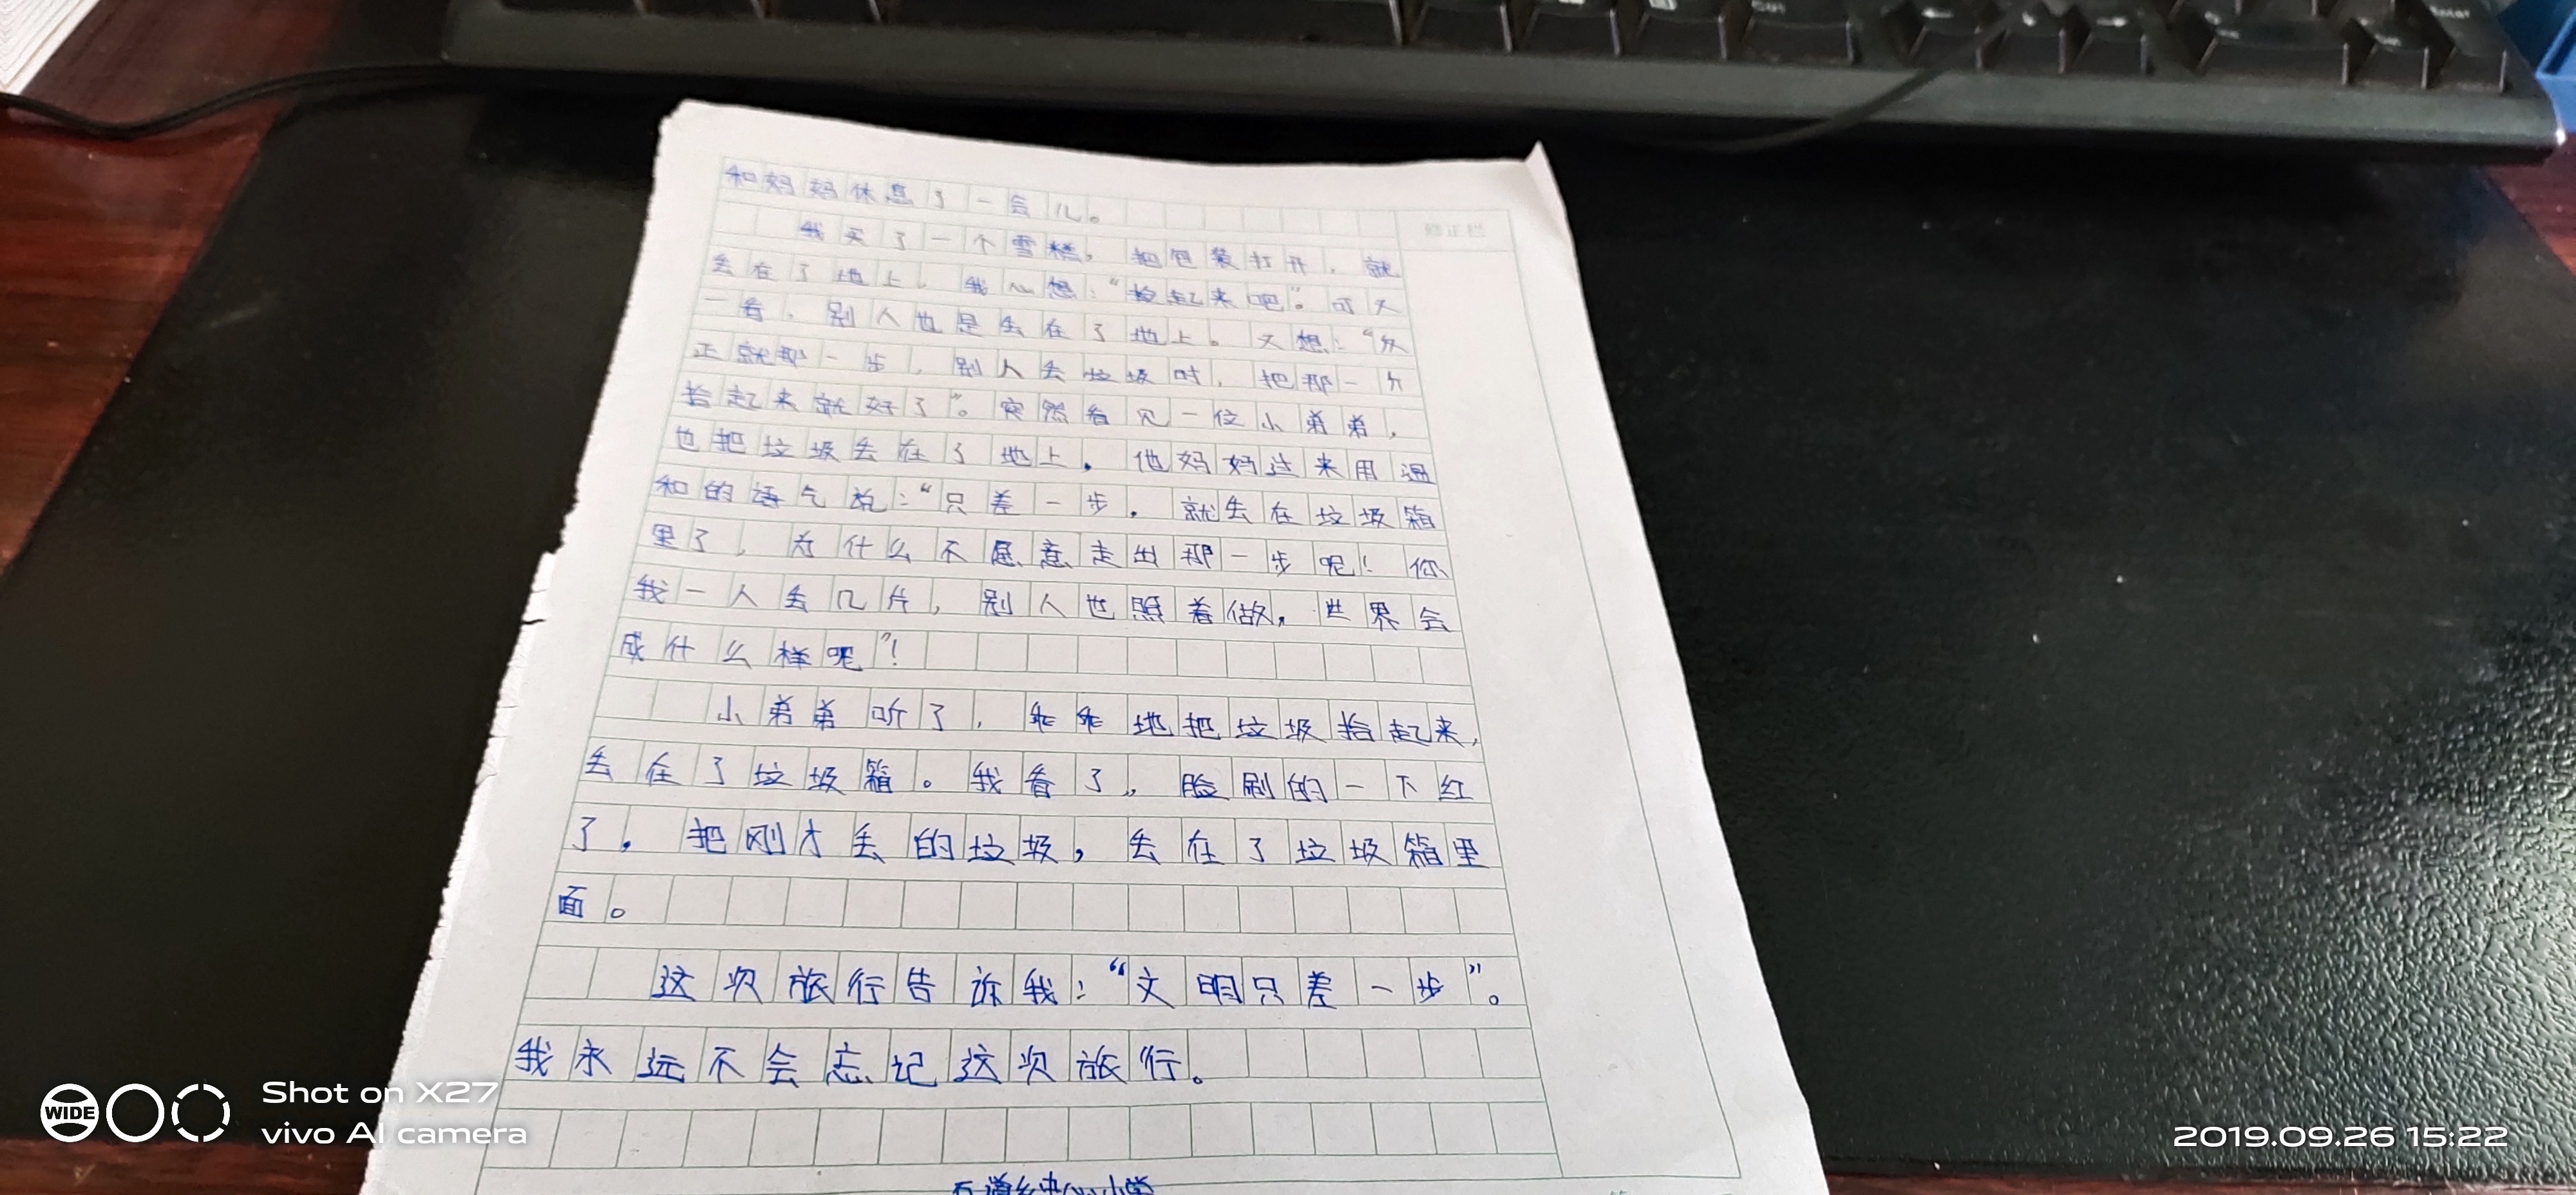 和妈妈休息了一会儿。
修正栏
我买了一个雪糕，把包装打开，就
丢在了地上，我心想：“捡起来吧”。可又
一看，别人也是丢在了地上。又想：“反
正就那一步，别人丢垃圾时，把那一片
拾起来就好了”。突然看见一位小弟弟，
也把垃圾丢在了地上，他妈妈过来用温
和的语气说：“只差一步，就丢在垃圾箱
里了，为什么不愿意走出那一步呢！你
我一人丢几片，别人也照着做，世界会
成什么样呢”！
小弟弟听了，乖乖地把垃圾拾起来，
丢在了垃圾箱。我看了，脸刷的一下红
了，把刚才丢的垃圾，丢在了垃圾箱里
面。
这次旅行告诉我：“文明只差一步”。
我永远不会忘记这次旅行。
Enter
WIDE
Shot on X27
vivo AI camera
2019.09.26 15:22